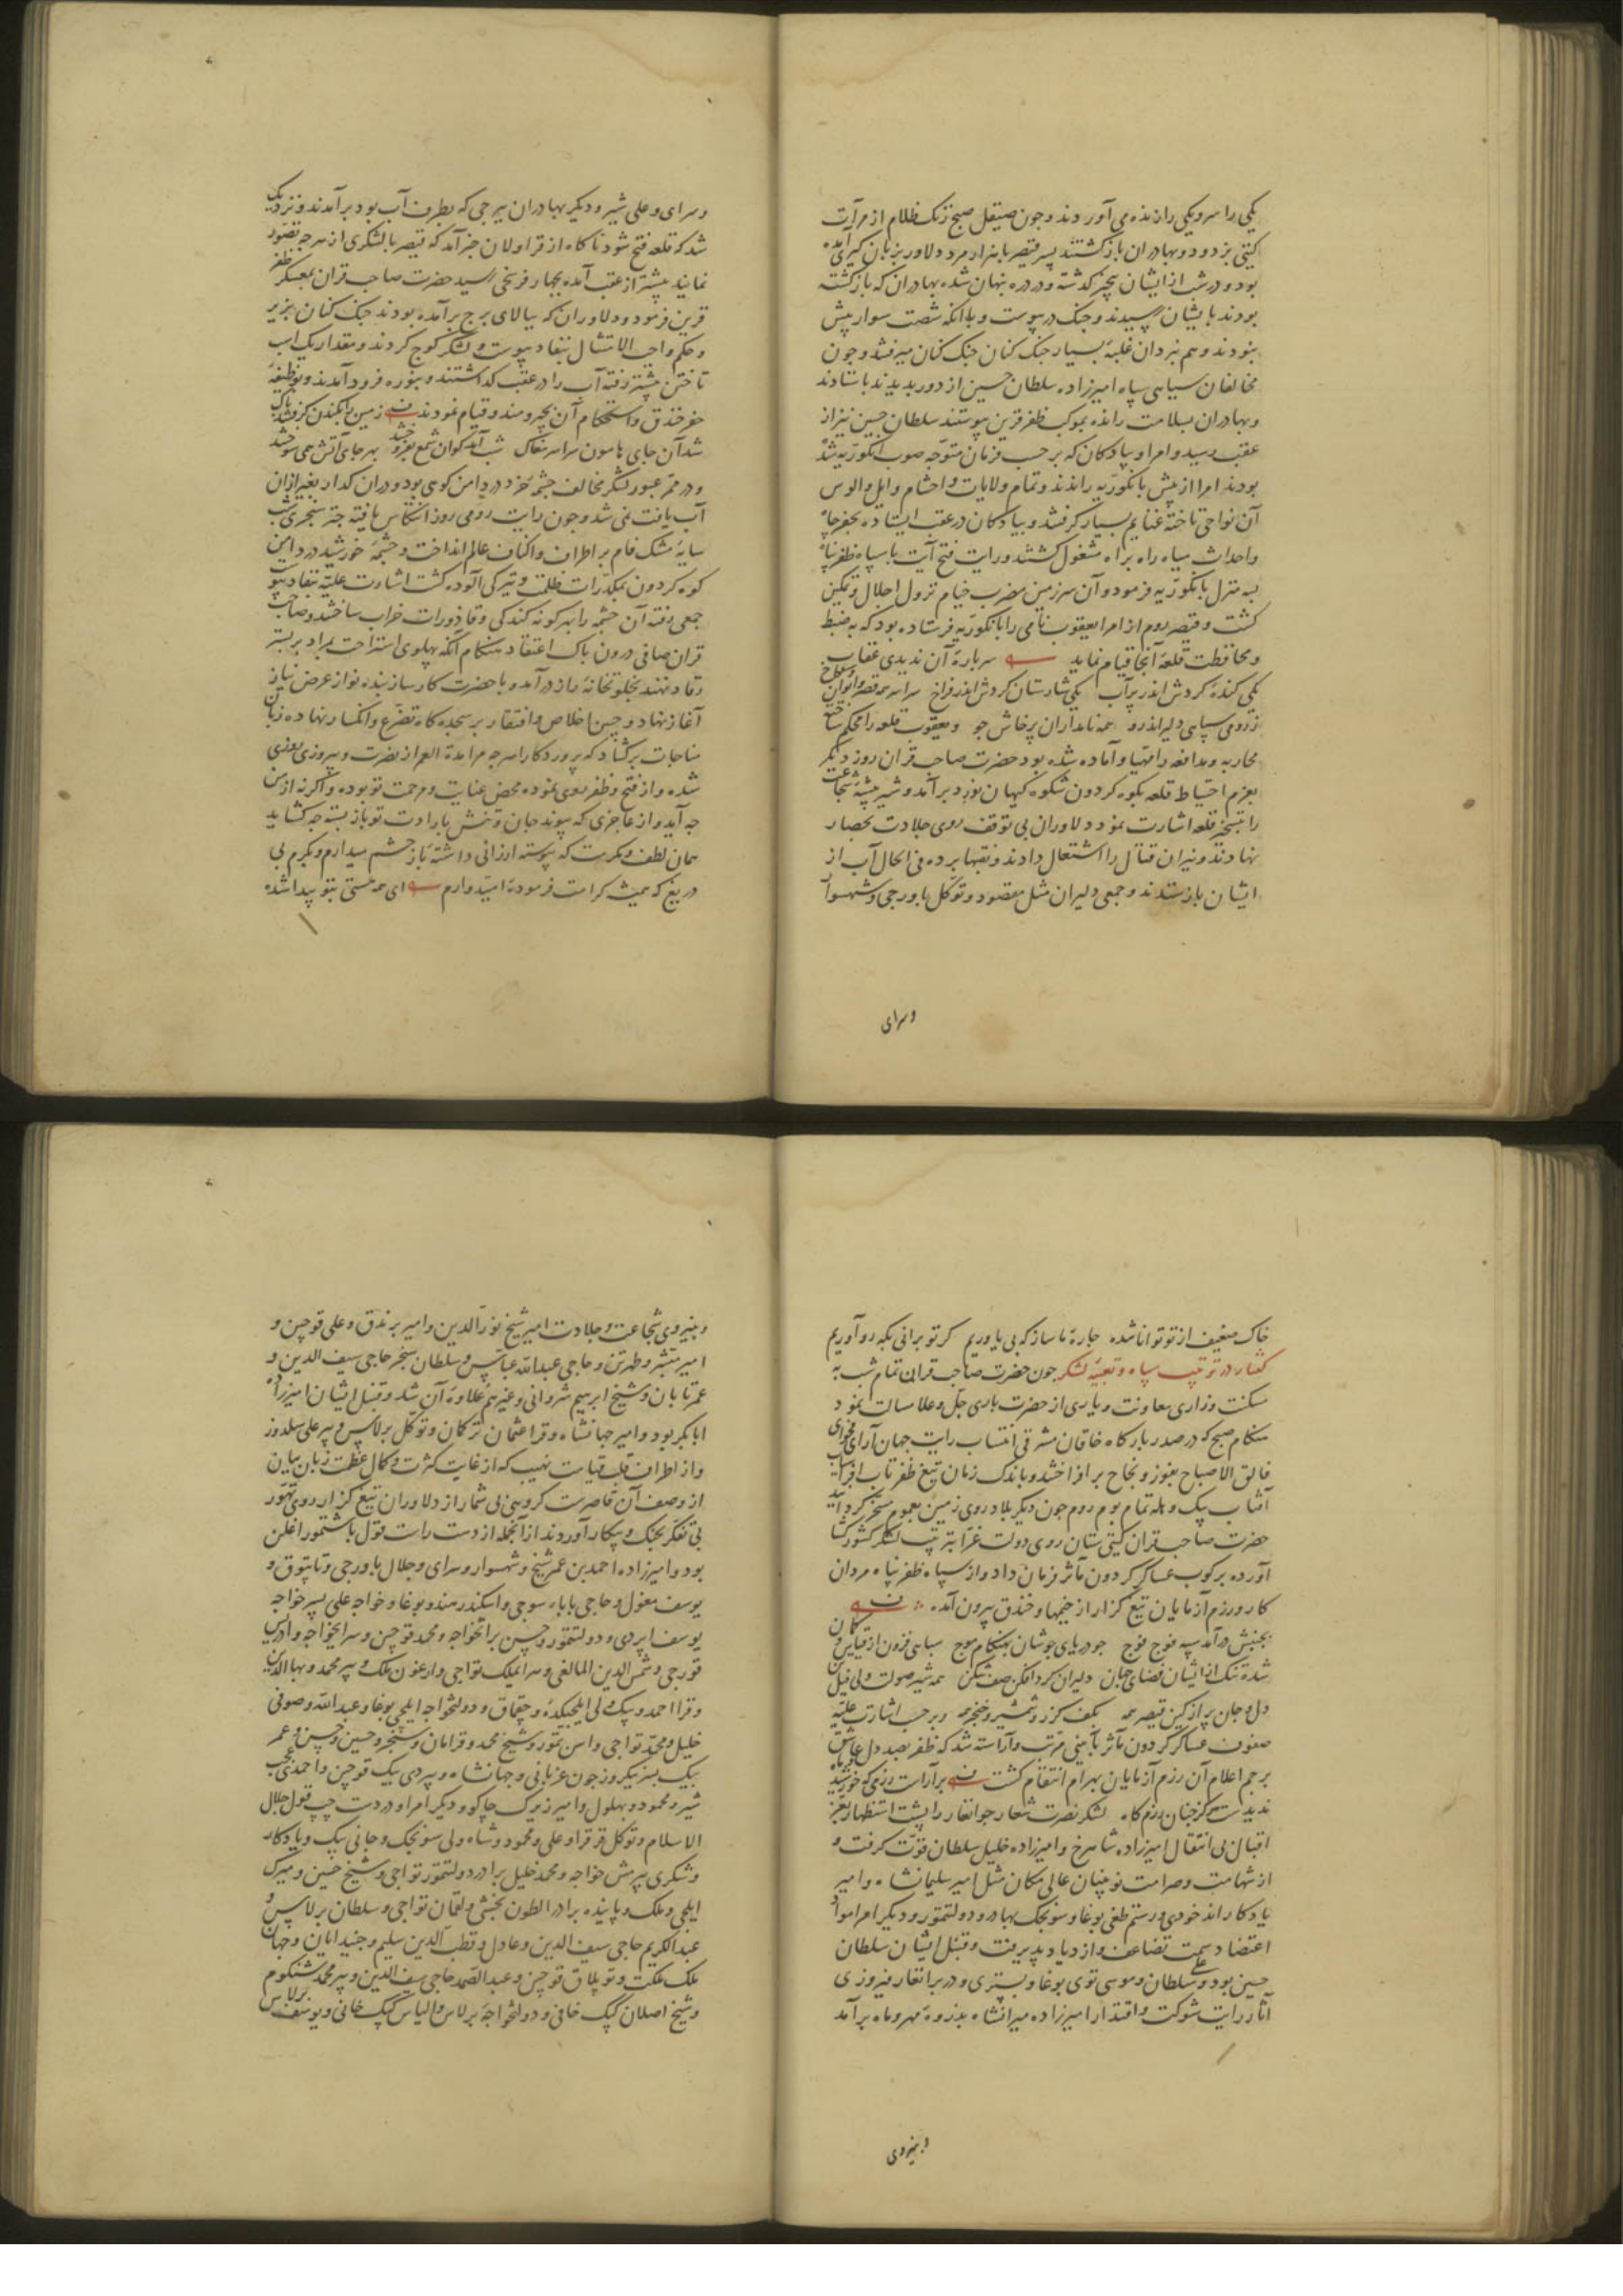 یکی را سر و یکی را زنده می آوردند و چون صیقل صبح زنک ظلام از مرآت
کیتی بزدود و بهادران بازکشتند پسر قیصر با هزار مرد دلاور بزبان کیری آمده
بود و در شب از ایشان بیخبر کذشته و در دره پنهان شده بهادران که بازکشته
بودند بایشان رسیدند و جنک درپیوست و با آنکه شصت سوار بیش
نبودند و هم نبردان غلبهٔ بسیار جنک کنان جنک کنان میرفتند و چون
مخالفان سیاهی سپاه امیرزاده سلطان حسین از دور بدیدند باستادند
و بهادران بسلامت رانده بموکب ظفر قرین پیوستند سلطان حسین نیز از
عقب رسید و امرا و پیادکان که بر حسب فرمان متوجه صوب انکوریه شده
بودند امرا از پیش بانکوریه راندند و تمام ولایات و احشام و ایل و الوس
آن نواحی تاخته غنایم بسیار کرفتند و پیادکان در عقب ایستاده بحفر چاه
و احداث میاه راه براه مشغول کشتند و رایت فتح آیت با سپاه ظفر پناه
بسه منزل بانکوریه فرمود و آن سرزمین مضرب خیام نزول اجلال و تمکین
کشت و قیصر روم از امرا یعقوب نامی را بانکوریه فرستاده بود که به ضبط
و محافظت قلعهٔ آنجا قیام نماید سر بارهٔ آن ندیدی عقاب
یکی کنده کردش اندر پرآب یکی شارستان کردش اندر فراخ سراسر همه قصر و ایوان و کاخ
ز رومی سپاهی دلیر اندرو همه نامداران پرخاش جو و یعقوب قلعه را محکم ساخته
محاربه و مدافعه را مهیا و آماده شده بود حضرت صاحب قران روز دیکر
بعزم احتیاط قلعه بکوه کردون شکوه کیهان نورد برآمد و شیر بیشهٔ شجاعت
را بتسخیر قلعه اشارت نمود دلاوران بی توقف روی جلادت بحصار
نهادند و نیران قتال را اشتعال دادند و نقبها برده فی الحال آب از
ایشان بازستدند و جمعی دلیران مثل مقصود و توکل باورجی و شهسوار
وسرای
وسرای و علی شیر و دیکر بهادران ببرجی که بطرف آب بود برآمدند و نزدیک
شد که قلعه فتح شود ناکاه از قراولان خبر آمد که قیصر با لشکری از هر چه تصور
نمایند بیشتر از عقب آمده بچهار فرسخی رسید حضرت صاحب قران بمعسکر ظفر
قرین فرمود و دلاوران که ببالای برج برآمده بودند جنک کنان بزیر
و حکم واجب الامتثال بنفاد پیوست و لشکر کوچ کردند و مقدار یک اسب
تاختن پیشتر رفته آب را در عقب کذاشتند و بنوره فرود آمدند و بوظیفهٔ
حفر خندق و استحکام آن بچر و مند و قیام نمودند زمین
شد آن جای هامون سراسر مغاک شب آمد کوان شمع بفروختند بهر جای آتش همی سوختند
و در ممر عبور لشکر مخالف چشمهٔ خرد در دامن کوهی بود و در آن کدار بغیر از آن
آب یافت نمی شد و چون رایت رومی روز انتکاس یافته چتر سنجری شب
سایهٔ مشک فام بر اطراف و اکناف عالم انداخت و چشمهٔ خورشید در دامن
کوه کردون بمکدرات ظلمت و تیرکی آلوده کشت اشارت علیه بنفاد پیوست
جمعی رفته آن چشمه را بهر کونه کندکی و قاذورات خراب ساختند و صاحب
قران صافی درون پاک اعتقاد هنکام آنکه پهلوی استراحت بمراد بر بستر
رقاد نهند بخلوتخانهٔ راز درآمد و با حضرت کارساز بنده نواز عرض نیاز
آغاز نهاد و جبین اخلاص و افتقار بر سجده کاه تضرع و انکسار نهاده زبان
مناجات برکشاد که پروردکارا هر چه مرا مدة العمر از نصرت و پیروزی روزی
شده و از فتح و ظفر روی نموده محض عنایت و مرحمت تو بوده و اکرنه از من
چه آید و از عاجزی که پیوند جان و تنش بارادت تو باز بسته چه کشاید
همان لطف و مکرمت که پیوسته ارزانی داشتهٔ باز چشم میدارم و بکرم بی
دریغ که همیشه کرامت فرمودهٔ امیدوارم ای همه هستی بتو پیدا شده
خاک ضعیف از تو توانا شده چارهٔ ما ساز که بی یاوریم کر تو برانی بکه رو آوریم
کفتار در ترتیب سپاه و تعبیهٔ لشکر چون حضرت صاحب قران تمام شب به
سکنت و زاری معاونت و یاری از حضرت باری جل و علا مسالت نمود
هنکام صبح که در صدر بارکاه خاقان مشرقی انتساب رایت جهان آرای بفحوای
فالق الاصباح بفوز و نجاح برافراختند و باندک زمان تیغ ظفرتاب افراسیاب
آفتاب بیک وهله تمام بوم روم چون دیکر بلاد روی زمین بعموم مسخر کردانید
حضرت صاحب قران کیتی ستان روی دولت غرا بترتیب لشکر کشورکشا
آورده برکوب عساکر کردون مآثر فرمان داد و از سپاه ظفر پناه مردان
کار و رزم آزمایان تیغ کزار از خیمها و خندق بیرون آمده
بجنبش درآمد سپه فوج فوج چو دریای جوشان بهنکام موج سپاهی فزون از قیاس و کمان
شده تنک از ایشان فضای جهان دلیران کردافکن صف شکن همه شیر صولت ولی فیل تن
دل و جان پر از کین قیصر همه بکف کرز و شمشیر و خنجر همه و بر حسب اشارت علیه
صفوف عساکر کردون مآثر بآیینی مرتب و آراسته شد که ظفر بصد دل عاشق
پرچم اعلام آن رزم آزمایان بهرام انتقام کشت برآراست رزمی که خورشید و ماه
ندیدست هرکز چنان رزم کاه لشکر نصرت شعار جوانغار را پشت استظهار بعز
اقبال بی انتقال امیرزاده شاهرخ و امیرزاده خلیل سلطان قوت کرفت و
از شهامت و صرامت نویینان عالی مکان مثل امیر سلیمانشاه و امیر
یادکار اندخودی و رستم طغی بوغا و سونجک بهادر و دولتتمور و دیکر امرا مواد
اعتضاد سمت تضاعف و ازدیاد پذیرفت و قنبل ایشان سلطان
حسین بود و علی سلطان و موسی توی بوغا و بستری و در برانغار فیروزی
آثار رایت شوکت و اقتدار امیرزاده میرانشاه بذروهٔ مهر و ماه برآمد
و بنیروی
و بنیروی شجاعت و جلادت امیر شیخ نورالدین و امیر برندق و علی قوچین و
امیر مبشر و طهرتن و حاجی عبدالله عباس و سلطان سنجر حاجی سیف الدین و
عمر تابان و شیخ ابرهیم شروانی و غیرهم علاوهٔ آن شد و قنبل ایشان امیرزاده
ابابکر بود و امیر جهانشاه و قرا عثمان ترکمان و توکل برلاس و پیر علی سلدوز
و از اطراف قلب قیامت نهیب که از غایت کثرت و کمال عظمت زبان بیان
از وصف آن قاصرست کروهی بی شمار از دلاوران تیغ کزار روی تهور
بی تفکر بجنک و پیکار آوردند از آنجمله از دست راست قول باشتمور اغلن
بود و امیرزاده احمد بن عمر شیخ و شهسوار و سرای و جلال باورجی و تابتوق و
یوسف مغول و حاجی بابا سوجی و اسکندر هندو بوغا و خواجه علی پسر خواجه
یوسف اپردی و دولتتمور و حسین براتخواجه و محمد قوچین و سرایخواجه و ادریس
قورجی و شمس الدین المالغی و سرایملک تواجی و ارغون ملک و پیر محمد و بهاالدین
و قرا احمد و بیک ولی ایلچیکده و چقماق و دولتخواجه ایلچی بوغا و عبدالله و صوفی
خلیل و محمد تواجی و اسن تمور و شیخ محمد و قرامان و سنجر و حسین و حسن و عمر
بیک پسر نیکروز جون غربانی و جهانشاه و پیردی بیک قوچین و احمد
شیر و محمود و بهلول و امیر زیرک جاکو و دیکر امرا و در دست چپ قول جلال
الاسلام و توکل قرقرا و علی و محمود و شاه ولی سونجک و جانی بیک و یادکار
و شکری پیرمش خواجه و محمد خلیل برادر دولتتمور تواجی و شیخ حسین و میرک
ایلچی و ملک و پاینده برادر الطون بخشی و لقمان تواجی و سلطان برلاس و
عبدالکریم حاجی سیف الدین و عادل و قطب الدین سلیم و جنید ایان و جهان
ملک ملکت و توبلاق قوچین و عبدالصمد حاجی سیف الدین و پیر محمد شنکوم
و شیخ اصلان کپک خانی و دولتخواجه برلاس و الیاس کپک خانی و یوسف برلاس